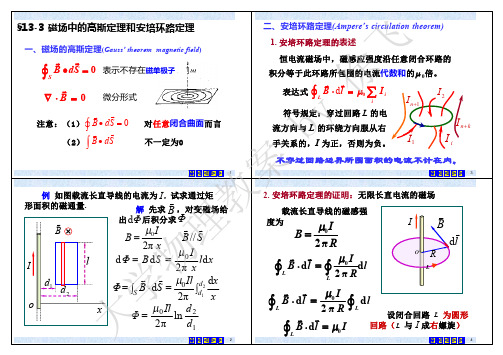 §13-3 磁场中的高斯定理和安培环路定理
一、磁场的高斯定理(Gauss' theorem magnetic field)
∮_S B⃗ • dS⃗ = 0 表示不存在磁单极子
∇ · B⃗ = 0 微分形式
注意：（1）∮ B⃗ • dS⃗ = 0 对任意闭合曲面而言
（2）∫ B⃗ • dS⃗ 不一定为0
1
二、安培环路定理(Ampere's circulation theorem)
1. 安培环路定理的表述
恒定电流磁场中，磁感应强度沿任意闭合环路的
积分等于此环路所包围的电流代数和的μ₀倍。
表达式 ∮_L B⃗ · dl⃗ = μ₀ Σ_i I_i
符号规定：穿过回路 L 的电
流方向与 L 的环绕方向服从右
手关系的，I 为正，否则为负。
I_{n+1} I_2
I_1 I_i I_{n+k}
不穿过回路边界所围面积的电流不计在内。
3
例 如图载流长直导线的电流为 I，试求通过矩
形面积的磁通量.
解 先求 B⃗，对变磁场给
出 dΦ 后积分求 Φ
B = μ₀I / 2π x B⃗ // S⃗
dΦ = B dS = μ₀I / 2π x l dx
Φ = ∫_S B⃗ · dS⃗ = μ₀Il / 2π ∫_{d₁}^{d₂} dx / x
Φ = μ₀Il / 2π ln d₂ / d₁
B⃗ ⊗
I l
d₁ d₂
o x
2
2. 安培环路定理的证明：无限长直电流的磁场
载流长直导线的磁感强
度为
B = μ₀I / 2π R
∮_L B⃗ · dl⃗ = ∮ μ₀I / 2π R dl
∮_L B⃗ · dl⃗ = μ₀I / 2π R ∮_L dl
∮_L B⃗ · dl⃗ = μ₀I
I B⃗
dl⃗
o R
L
设闭合回路 L 为圆形
回路（L 与 I 成右螺旋）
4